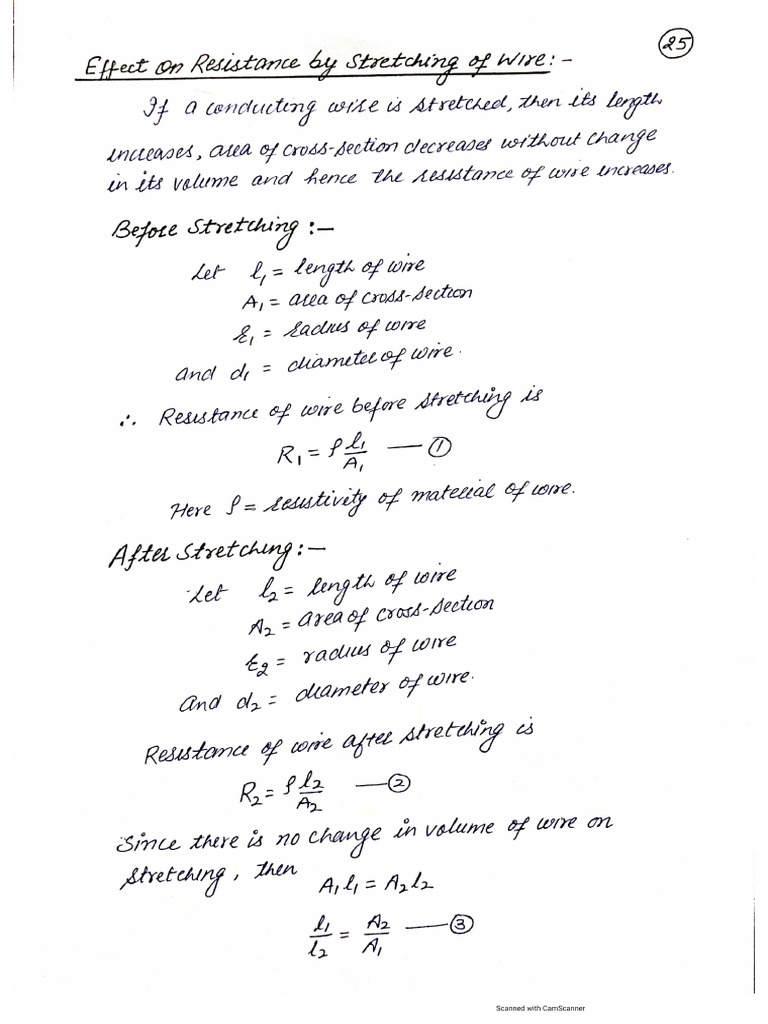 25
Effect on Resistance by Stretching of Wire:-
If a conducting wire is stretched, then its length
increases, area of cross-section decreases without change
in its volume and hence the resistance of wire increases.
Before Stretching :-
Let l₁ = length of wire
A₁ = area of cross-section
r₁ = radius of wire
and d₁ = diameter of wire.
∴ Resistance of wire before stretching is
R₁ = ρ l₁/A₁ — ①
Here ρ = resistivity of material of wire.
After Stretching :-
Let l₂ = length of wire
A₂ = area of cross-section
r₂ = radius of wire
and d₂ = diameter of wire.
Resistance of wire after stretching is
R₂ = ρ l₂/A₂ — ②
Since there is no change in volume of wire on
stretching, then
A₁l₁ = A₂l₂
l₁/l₂ = A₂/A₁ — ③
Scanned with CamScanner